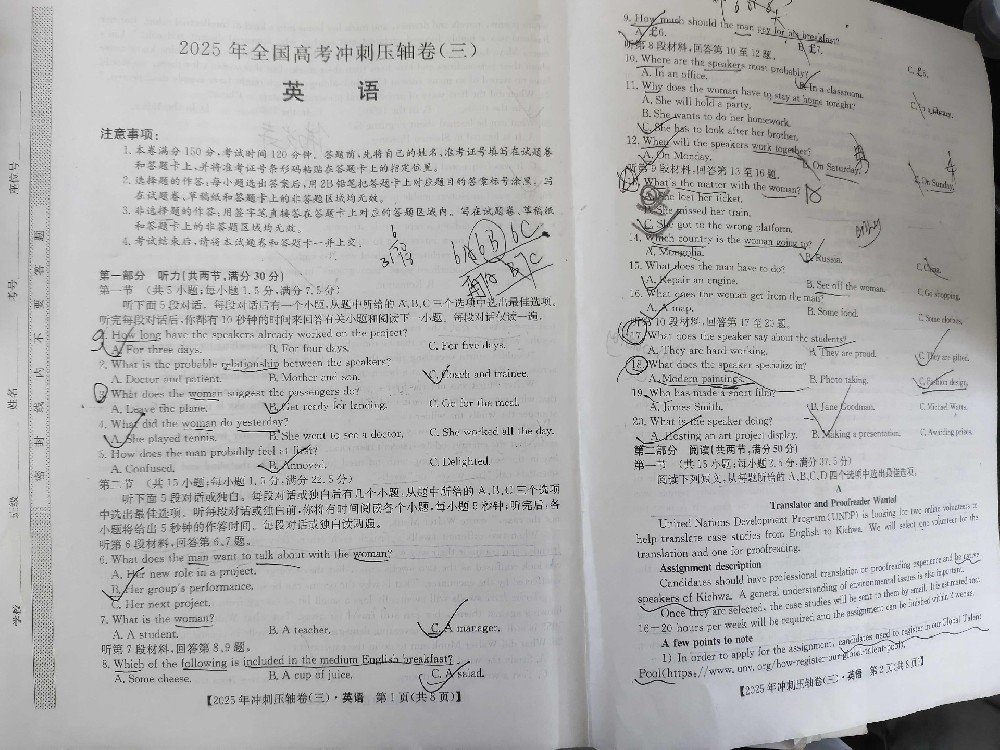 2025年全国高考冲刺压轴卷(三)
英 语
注意事项:
1.本卷满分150分,考试时间120分钟。答题前,先将自己的姓名、准考证号填写在试题卷
和答题卡上,并将准考证号条形码粘贴在答题卡上的指定位置。
2.选择题的作答:每小题选出答案后,用2B铅笔把答题卡上对应题目的答案标号涂黑,写
在试题卷、草稿纸和答题卡上的非答题区域均无效。
3.非选择题的作答:用签字笔直接答在答题卡上对应的答题区域内。写在试题卷、草稿纸
和答题卡上的非答题区域均无效。
4.考试结束后,请将本试题卷和答题卡一并上交。
第一部分 听力(共两节,满分30分)
第一节 (共5小题;每小题1.5分,满分7.5分)
听下面5段对话。每段对话后有一个小题,从题中所给的A、B、C三个选项中选出最佳选项。
听完每段对话后,你都有10秒钟的时间来回答有关小题和阅读下一小题。每段对话仅读一遍。
1. How long have the speakers already worked on the project?
A. For three days. B. For four days. C. For five days.
2. What is the probable relationship between the speakers?
A. Doctor and patient. B. Mother and son. C. Coach and trainee.
3. What does the woman suggest the passengers do?
A. Leave the plane. B. Get ready for landing. C. Go for the meal.
4. What did the woman do yesterday?
A. She played tennis. B. She went to see a doctor. C. She worked all the day.
5. How does the man probably feel at first?
A. Confused. B. Annoyed. C. Delighted.
第二节 (共15小题;每小题1.5分,满分22.5分)
听下面5段对话或独白。每段对话或独白后有几个小题,从题中所给的A、B、C三个选项
中选出最佳选项。听每段对话或独白前,你将有时间阅读各个小题,每小题5秒钟;听完后,各
小题将给出5秒钟的作答时间。每段对话或独白读两遍。
听第6段材料,回答第6、7题。
6. What does the man want to talk about with the woman?
A. Her new role in a project.
B. Her group's performance.
C. Her next project.
7. What is the woman?
A. A student. B. A teacher. C. A manager.
听第7段材料,回答第8、9题。
8. Which of the following is included in the medium English breakfast?
A. Some cheese. B. A cup of juice. C. A salad.
【2025年冲刺压轴卷(三)·英语 第1页(共8页)】
9. How much should the man pay for his breakfast?
A. £6. B. £7. C. £8.
听第8段材料,回答第10至12题。
10. Where are the speakers most probably?
A. In an office. B. In a classroom. C. In a library.
11. Why does the woman have to stay at home tonight?
A. She will hold a party.
B. She wants to do her homework.
C. She has to look after her brother.
12. When will the speakers work together?
A. On Monday. B. On Saturday. C. On Sunday.
听第9段材料,回答第13至16题。
13. What's the matter with the woman?
A. She lost her ticket.
B. She missed her train.
C. She got to the wrong platform.
14. Which country is the woman going to?
A. Mongolia. B. Russia. C. China.
15. What does the man have to do?
A. Repair an engine. B. See off the woman. C. Go shopping.
16. What does the woman get from the man?
A. A map. B. Some food. C. Some clothes.
听第10段材料,回答第17至20题。
17. What does the speaker say about the students?
A. They are hard working. B. They are proud. C. They are gifted.
18. What does the speaker specialize in?
A. Modern paintings. B. Photo taking. C. Fashion design.
19. Who has made a short film?
A. James Smith. B. Jane Goodman. C. Michael Watts.
20. What is the speaker doing?
A. Hosting an art project display. B. Making a presentation. C. Awarding prizes.
第二部分 阅读(共两节,满分50分)
第一节 (共15小题;每小题2.5分,满分37.5分)
阅读下列短文,从每题所给的A、B、C、D四个选项中选出最佳选项。
A
Translator and Proofreader Wanted
United Nations Development Program (UNDP) is looking for two online volunteers to
help translate case studies from English to Kichwa. We will select one volunteer for the
translation and one for proofreading.
Assignment description
Candidates should have professional translation or proofreading experience and be native
speakers of Kichwa. A general understanding of environmental issues is also important.
Once they are selected, the case studies will be sent to them by email. It is estimated that
16—20 hours per week will be required and the assignment can be finished within 3 weeks.
A few points to note
1) In order to apply for the assignment, candidates need to register in our Global Talent
Pool(https://www.unv.org/how-register-our-global-talent-pool).
【2025年冲刺压轴卷(三)·英语 第2页(共8页)】